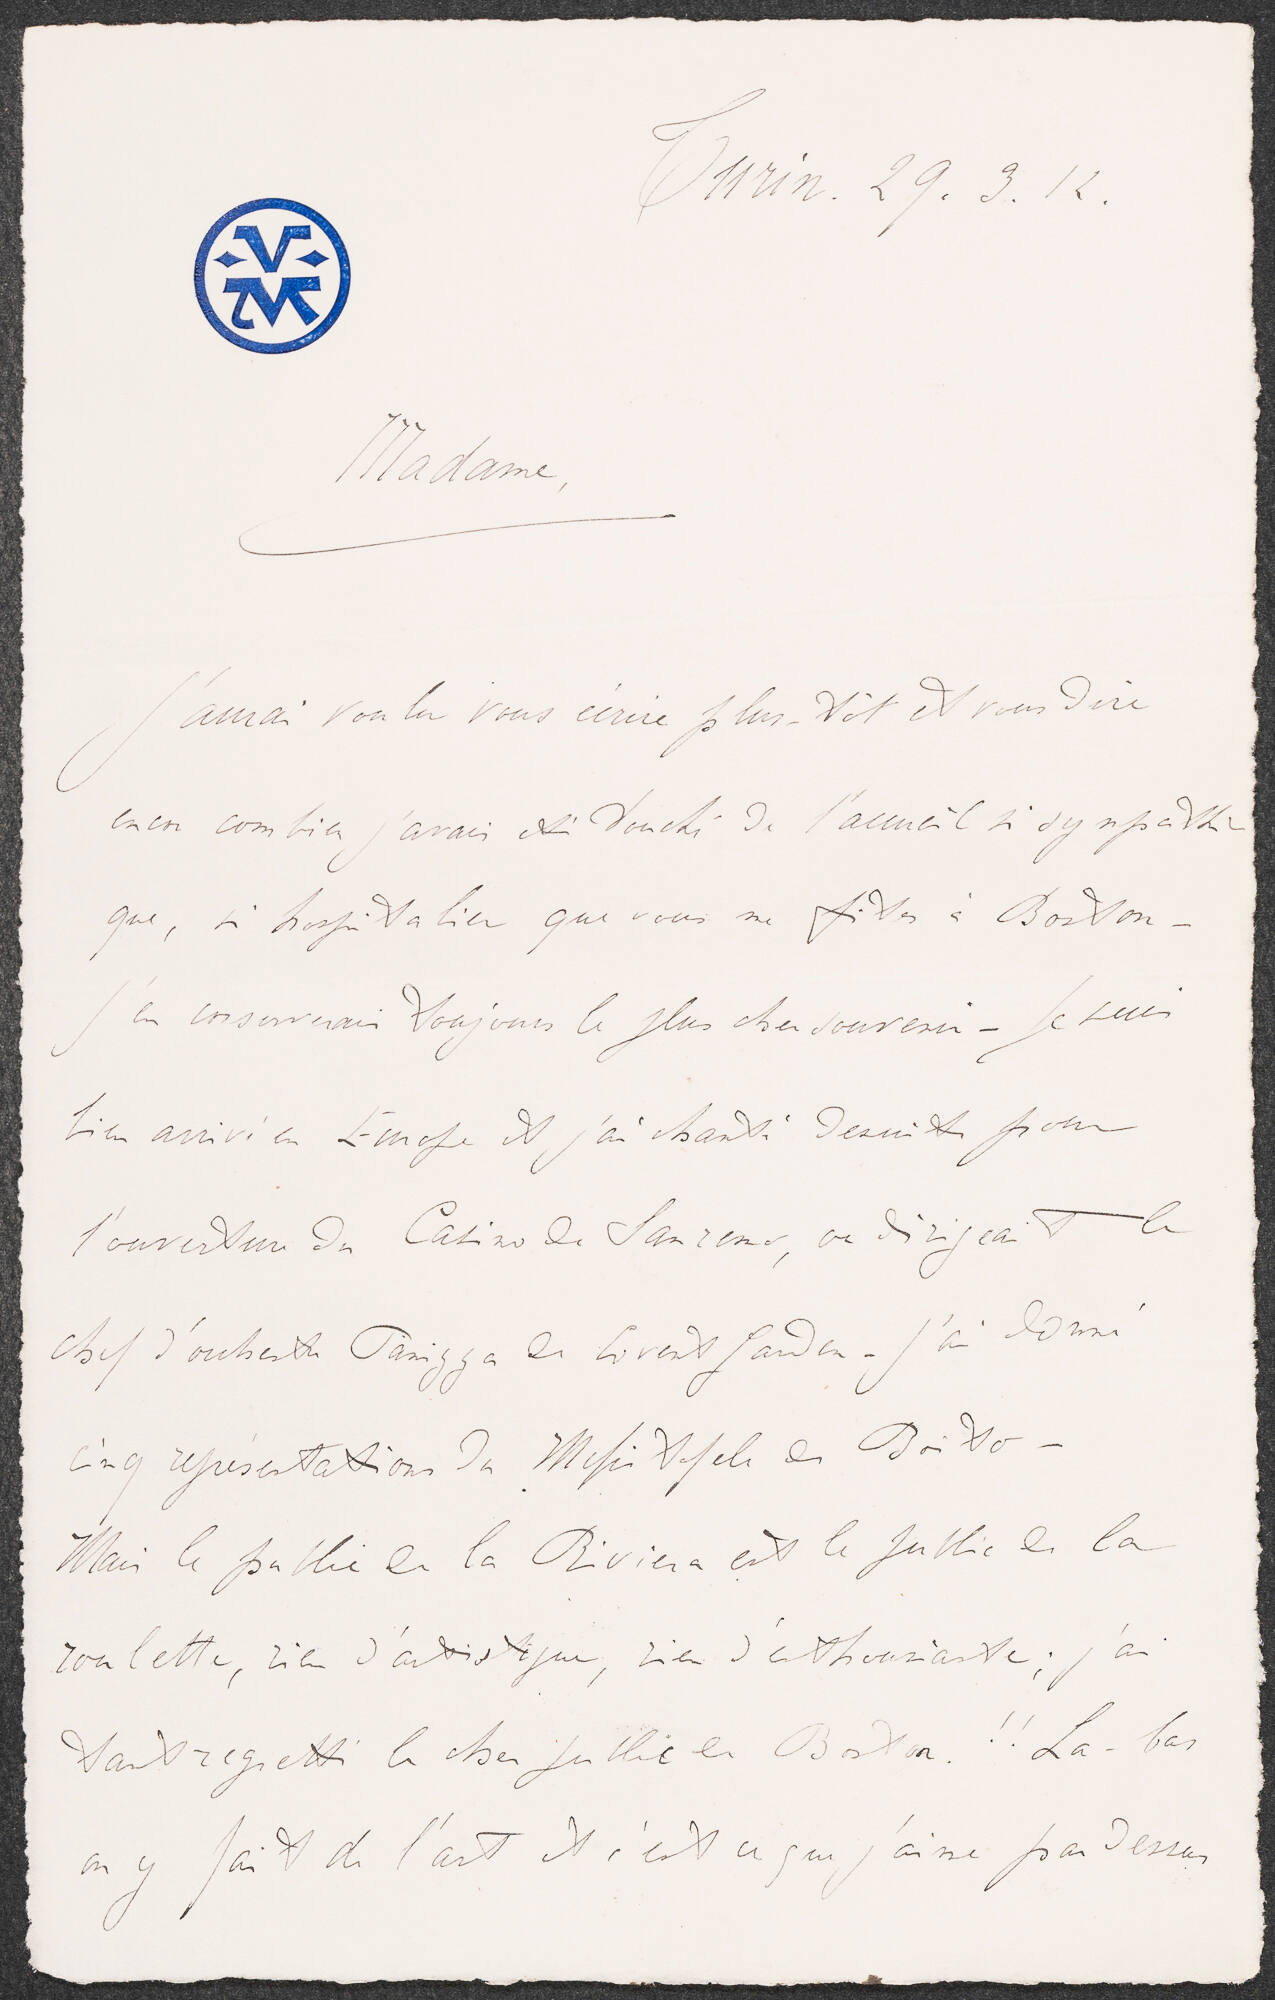 Turin. 29. 3. 12.
VM
Madame,
J'aurai voulu vous écrire plus-tôt et vous dire
encore combien j'avais été touché de l'accueil si sympathi
que, si hospitalier que vous me fites à Boston -
J'en conserverais toujours le plus cher souvenir - Je suis
bien arrivé en Europe et j'ai chanté desuite pour
l'ouverture du Casino de Sanremo, ou dirigeait le
chef d'orchestre Panizza de Covent Garden - J'ai donné
cinq représentations du Mefistofele de Boito -
Mais le public de la Riviera est le public de la
roulette, rien d'artistique, rien d'enthousiaste; j'ai
tant regretté le cher public de Boston.!! La-bas
on y fait de l'art et c'est ce que j'aime par dessus